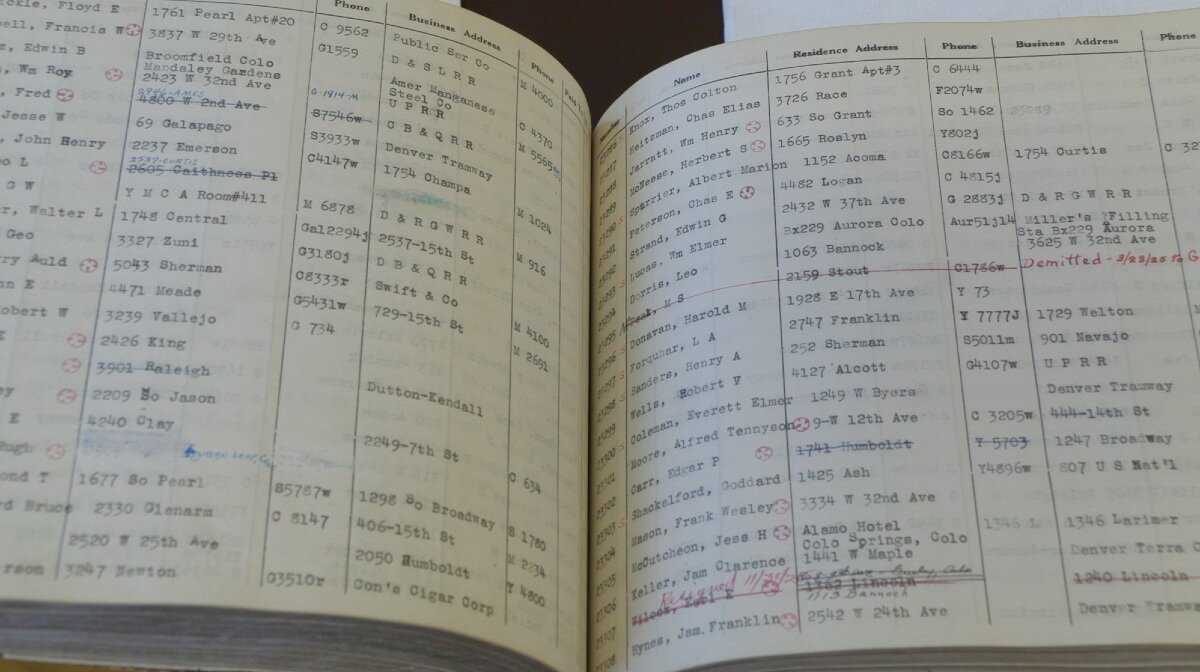 Phone Business Address Phone
Floyd E 1761 Pearl Apt#20 C 9562 Public Ser Co M 4000
Francis W 3837 W 29th Ave G1559 D & S L R R
Edwin B Broomfield Colo
Mandaley Gardens Amer Manganese
Steel Co C 4370
Wm Roy 2423 W 32nd Ave G-1914-M U P R R M 5565
3946-AMES
Fred 4800 W 2nd Ave S7546w C B & Q R R
Jesse W 69 Galapago S3933w Denver Tramway
John Henry 2237 Emerson C4147w 1754 Champa M 1024
2605 Caithness Pl
G W Y M C A Room#411 M 6878 D & R G W R R M 916
Walter L 1748 Central Gal2294j 2537-15th St
Geo 3327 Zuni G3180j D B & Q R R
Auld 5043 Sherman C8333r Swift & Co M 4100
4471 Meade G5431w 729-15th St M 2691
3239 Vallejo G 734
2426 King
3901 Raleigh Dutton-Kendall
2209 So Jason
4240 Clay 2249-7th St C 634
1677 So Pearl S5787w 1298 So Broadway S 1780
Bruce 2330 Glenarm C 8147 406-15th St M 2234
2520 W 25th Ave 2050 Humboldt Y 4800
3247 Newton G3510r Con's Cigar Corp
Name Residence Address Phone Business Address Phone
Knox, Thos Colton 1756 Grant Apt#3 C 6444
Feitzman, Chas Elias 3726 Race F2074w
Jarratt, Wm Henry 633 So Grant So 1462
McNeese, Herbert S 1665 Roslyn Y802j
Spurrier, Albert Marion 1152 Acoma C8166w 1754 Curtis
Peterson, Chas E 4482 Logan C 4815j
Strand, Edwin G 2432 W 37th Ave G 2883j D & R G W R R
Lucas, Wm Elmer Bx229 Aurora Colo Aur51j14 Miller's Filling
Sta Bx229 Aurora
Dorris, Leo 1063 Bannock 3625 W 32nd Ave
M S 2159 Stout C1786w Demitted - 3/23/25 to G
Donavan, Harold M 1928 E 17th Ave Y 73
Forquhar, L A 2747 Franklin Y 7777J 1729 Welton
Sanders, Henry A 252 Sherman S5011m 901 Navajo
Wells, Robert V 4127 Alcott G4107w U P R R
Coleman, Everett Elmer 1249 W Byers Denver Tramway
Moore, Alfred Tennyson 9-W 12th Ave C 3205w 444-14th St
Carr, Edgar P 1741 Humboldt Y 5703 1247 Broadway
Shackelford, Goddard 1425 Ash Y4896w 807 U S Nat'l
Mason, Frank Wesley 3334 W 32nd Ave
McCutcheon, Jess H Alamo Hotel
Colo Springs, Colo 1346 L 1346 Larimer
Keller, Jam Clarence 1441 W Maple Denver Terra C
Resigned
Wilcox, Earl 1362 Lincoln 1240 Lincoln
1113 Bannock
Hynes, Jam.Franklin 2542 W 24th Ave Denver Tramway